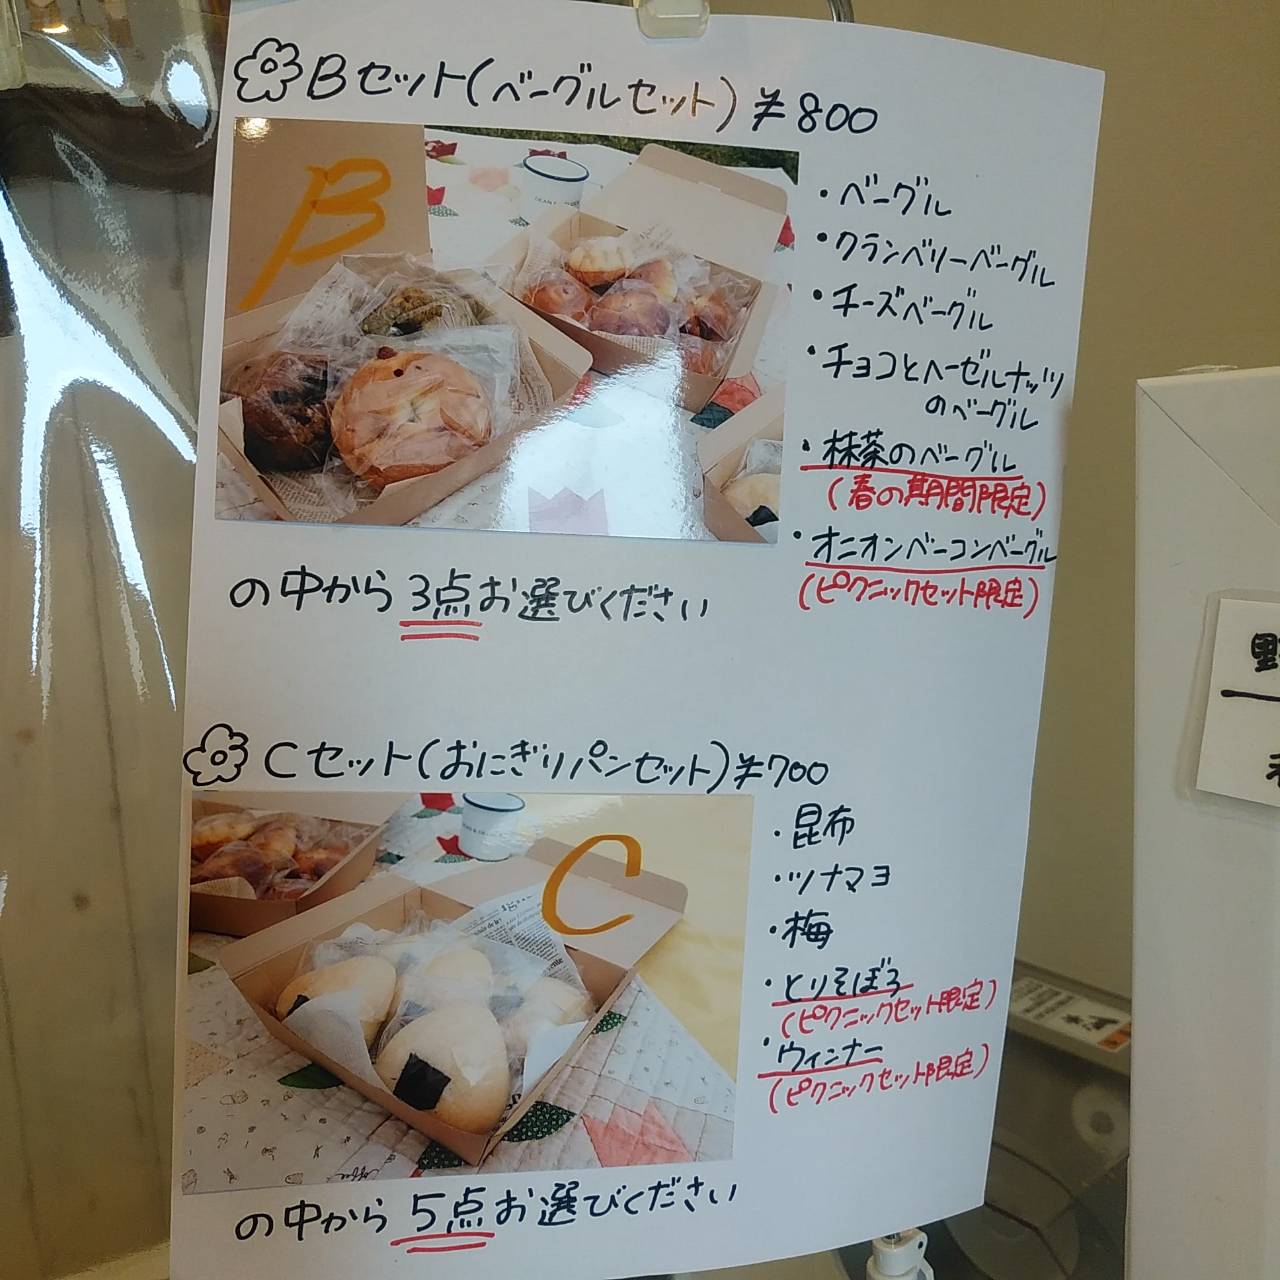 Bセット(ベーグルセット)¥800
B
・ベーグル
・クランベリーベーグル
・チーズベーグル
・チョコとヘーゼルナッツ
のベーグル
・抹茶のベーグル
(春の期間限定)
・オニオンベーコンベーグル
(ピクニックセット限定)
の中から3点お選びください
Cセット(おにぎりパンセット)¥700
C
・昆布
・ツナマヨ
・梅
・とりそぼろ
(ピクニックセット限定)
・ウィンナー
(ピクニックセット限定)
の中から5点お選びください